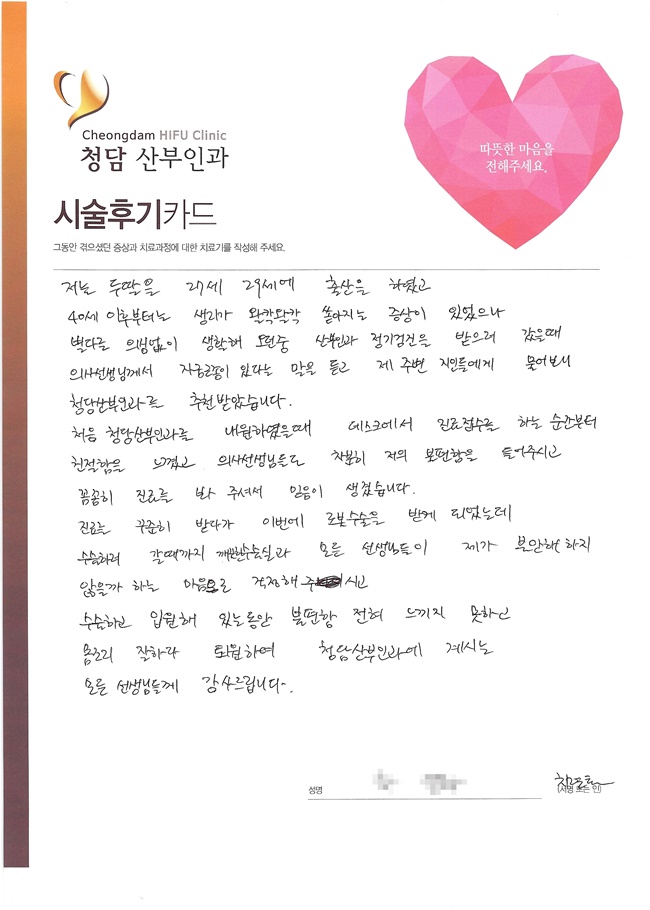 Cheongdam HIFU Clinic
청담 산부인과
따뜻한 마음을
전해주세요.
시술후기카드
그동안 겪으셨던 증상과 치료과정에 대한 치료기를 작성해 주세요.
저는 두딸을 27세 29세에 출산을 하였고
40세 이후부터는 생리가 왈칵왈칵 쏟아지는 증상이 있었으나
별다른 의심없이 생활해 오던중 산부인과 정기검진을 받으러 갔을때
의사선생님께서 자궁근종이 있다는 말을 듣고 제 주변 지인들에게 물어보니
청담산부인과를 추천받았습니다.
처음 청담산부인과를 내원하였을때 데스크에서 진료접수를 하는 순간부터
친절함을 느꼈고 의사선생님들도 차분히 저의 불편함을 들어주시고
꼼꼼히 진료를 봐 주셔서 믿음이 생겼습니다.
진료를 꾸준히 받다가 이번에 로봇수술을 받게 되었는데
수술하러 갈때까지 모든 선생님들이 제가 불안해 하지
않을까 하는 마음으로 걱정해 주시고
수술하고 입원해 있는동안 불편함 전혀 느끼지 못하고
몸조리 잘하다 퇴원하여 청담산부인과에 계시는
모든 선생님들께 감사드립니다~.
성명
(서명 또는 인)